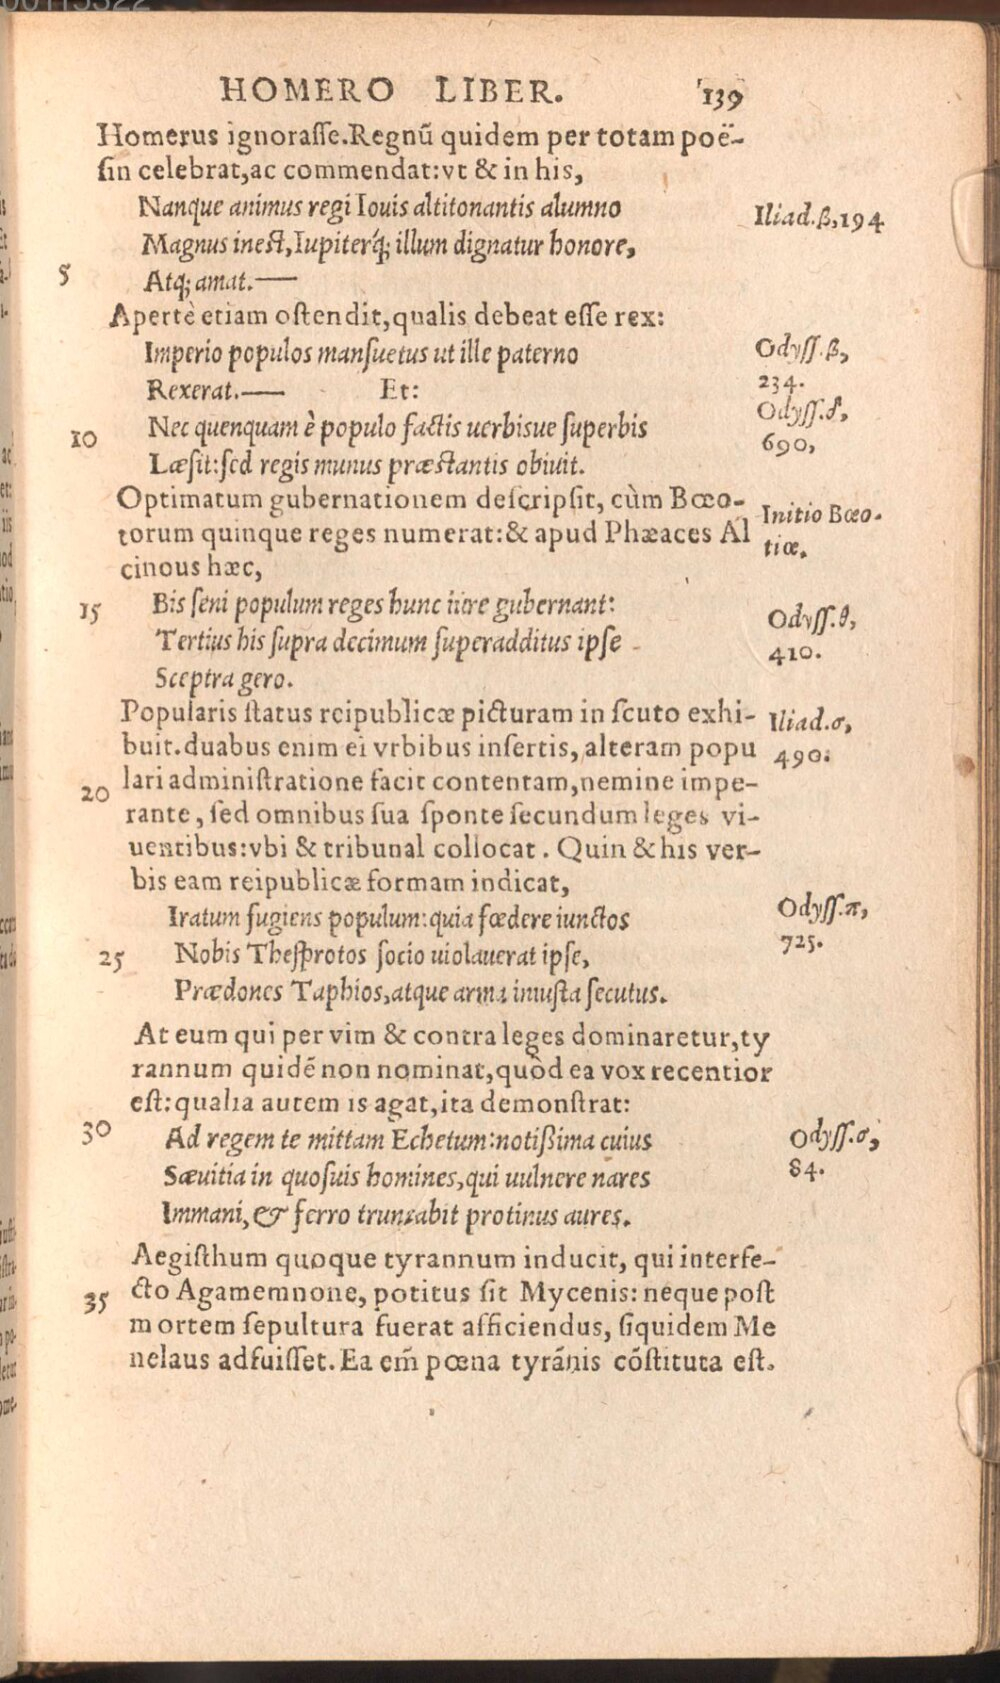 00115322
HOMERO LIBER. 139
Homerus ignorasse.Regnũ quidem per totam poë-
sin celebrat,ac commendat:vt & in his,
Nanque animus regi Iouis altitonantis alumno
Iliad.β,194
Magnus inest,Iupiterq́; illum dignatur honore,
5
Atq; amat.——
Apertè etiam ostendit,qualis debeat esse rex:
Imperio populos mansuetus ut ille paterno
Odyss.β,
Rexerat.—— Et:
234.
Odyss.δ,
10
Nec quenquam è populo factis uerbisue superbis
690,
Læsit:sed regis munus præstantis obiuit.
Optimatum gubernationem descripsit, cùm Bœo-
Initio Bœo-
torum quinque reges numerat:& apud Phæaces Al
tiæ.
cinous hæc,
15
Bis seni populum reges hunc iure gubernant:
Odyss.θ,
Tertius his supra decimum superadditus ipse
410.
Sceptra gero.
Popularis status reipublicæ picturam in scuto exhi-
Iliad.σ,
buit.duabus enim ei vrbibus insertis, alteram popu
490.
20
lari administratione facit contentam,nemine impe-
rante, sed omnibus sua sponte secundum leges vi-
uentibus:vbi & tribunal collocat. Quin & his ver-
bis eam reipublicæ formam indicat,
Iratum fugiens populum:quia fœdere iunctos
Odyss.π,
25
Nobis Thesprotos socio uiolauerat ipse,
725.
Prædones Taphios,atque arma iniusta secutus.
At eum qui per vim & contra leges dominaretur,ty
rannum quidẽ non nominat,quòd ea vox recentior
est:qualia autem is agat,ita demonstrat:
30
Ad regem te mittam Echetum:notißima cuius
Odyss.σ,
Sæuitia in quosuis homines,qui uulnere nares
84.
Immani, & ferro truncabit protinus aures.
Aegisthum quoque tyrannum inducit, qui interfe-
35
cto Agamemnone, potitus sit Mycenis: neque post
mortem sepultura fuerat afficiendus, siquidem Me
nelaus adfuisset. Ea em̃ pœna tyrãnis cõstituta est.